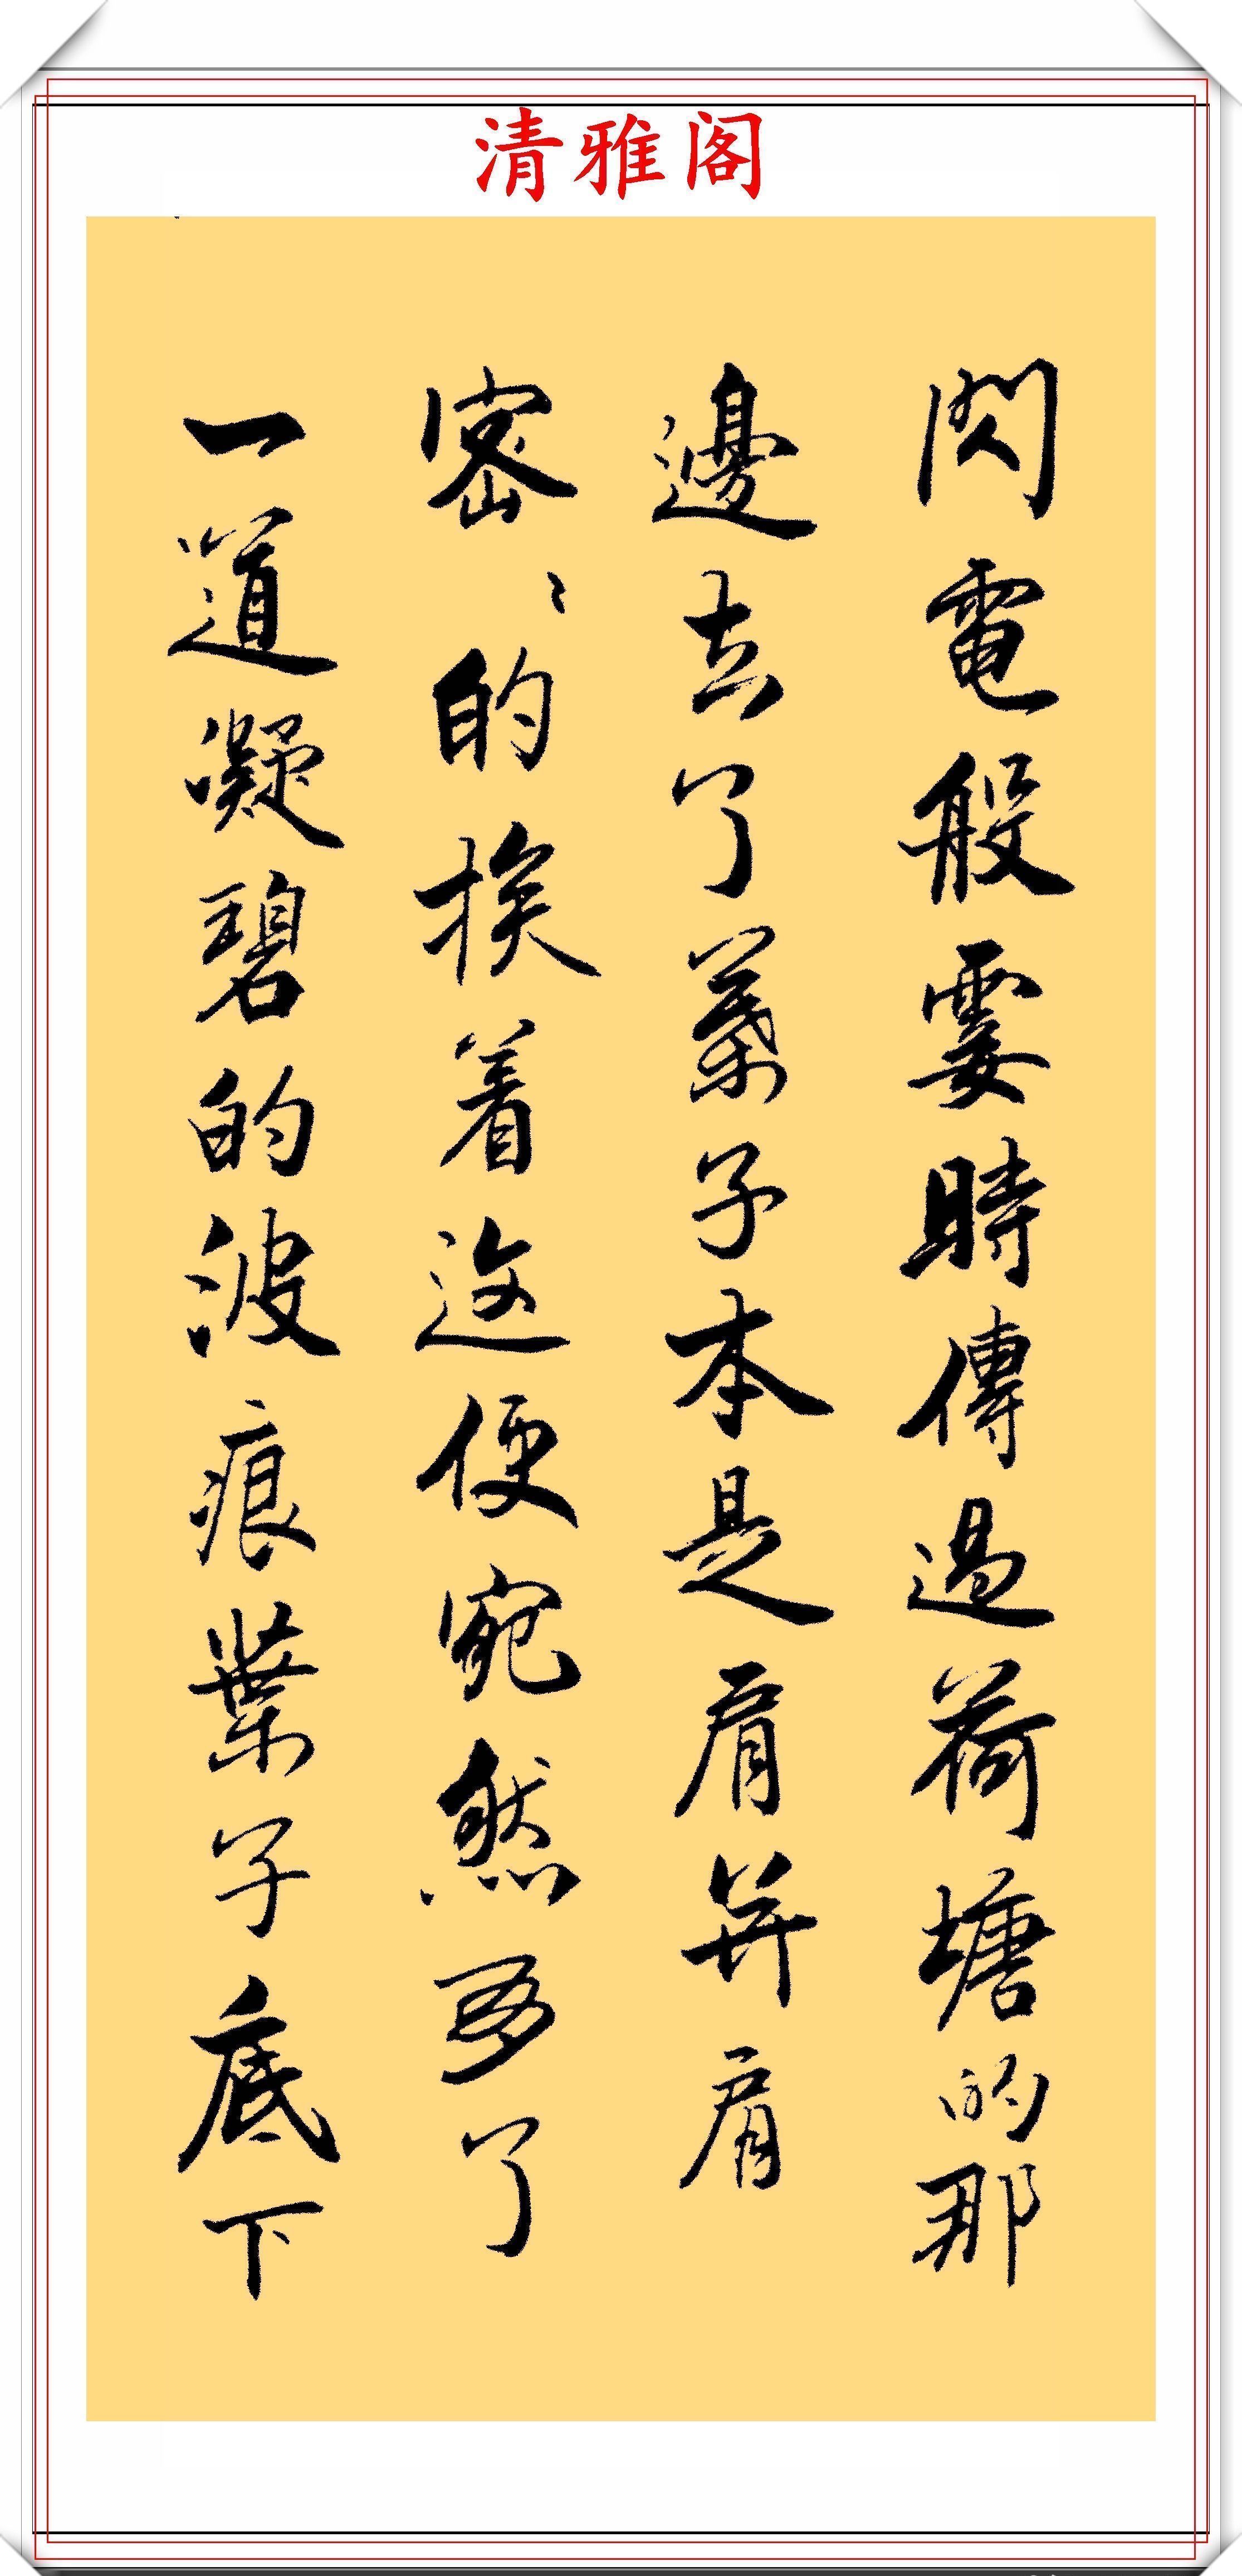 清雅阁
閃電般霎時傳過荷塘的那
邊去了葉子本是肩并肩
密〻的挨着这便宛然有了
一道凝碧的波痕葉子底下